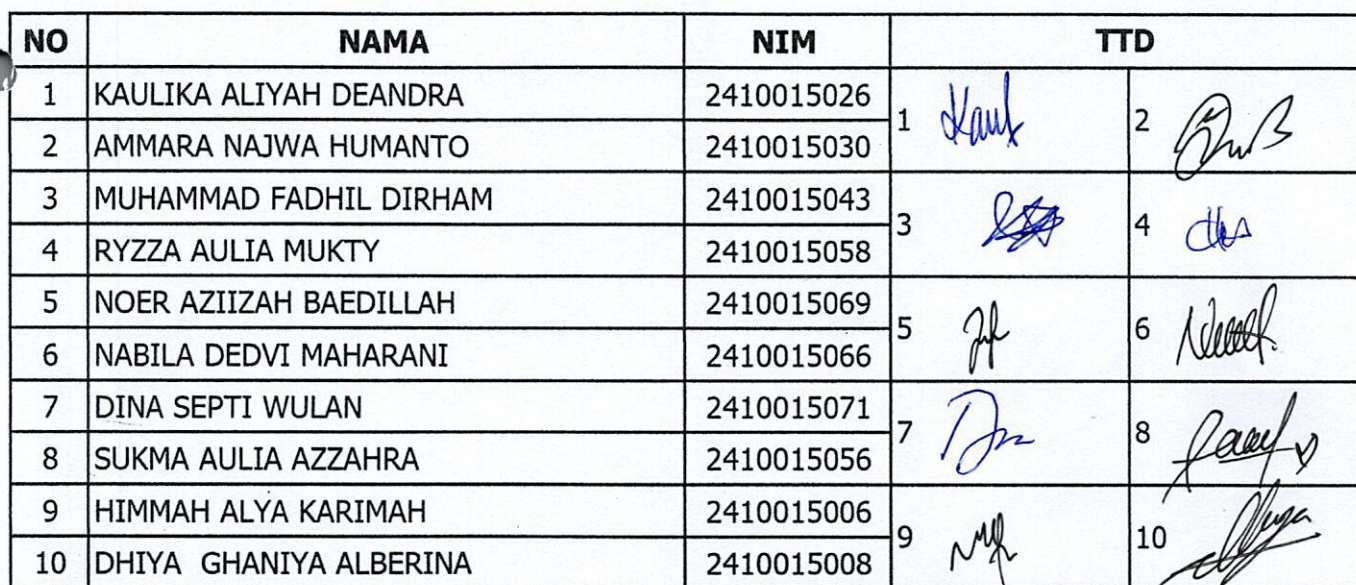 NO NAMA NIM TTD
1 KAULIKA ALIYAH DEANDRA 2410015026 1 Kaul 2
2 AMMARA NAJWA HUMANTO 2410015030
3 MUHAMMAD FADHIL DIRHAM 2410015043 3 4
4 RYZZA AULIA MUKTY 2410015058
5 NOER AZIIZAH BAEDILLAH 2410015069 5 6
6 NABILA DEDVI MAHARANI 2410015066
7 DINA SEPTI WULAN 2410015071 7 8
8 SUKMA AULIA AZZAHRA 2410015056
9 HIMMAH ALYA KARIMAH 2410015006 9 10
10 DHIYA GHANIYA ALBERINA 2410015008